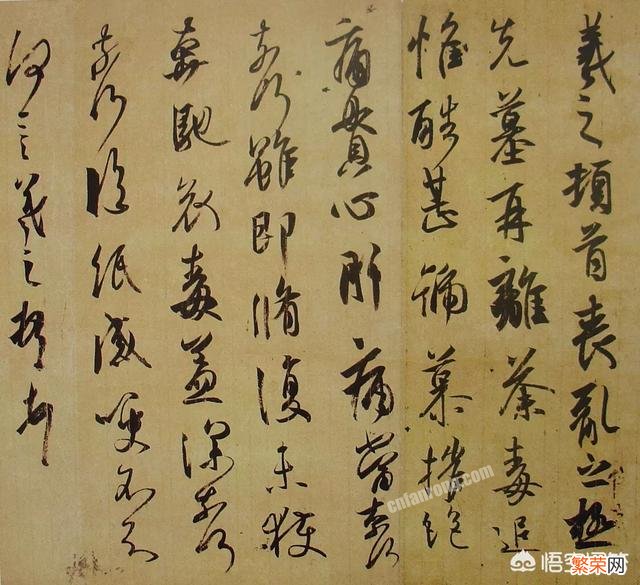 羲之頓首喪亂之極
先墓再離荼毒追
惟酷甚號慕摧絕
痛貫心肝痛當奈何
奈何雖即脩復未獲
奔馳哀毒益深奈何
奈何臨紙感哽不知
何言羲之頓首頓首
cnfanrong.com
悟空
繁荣网